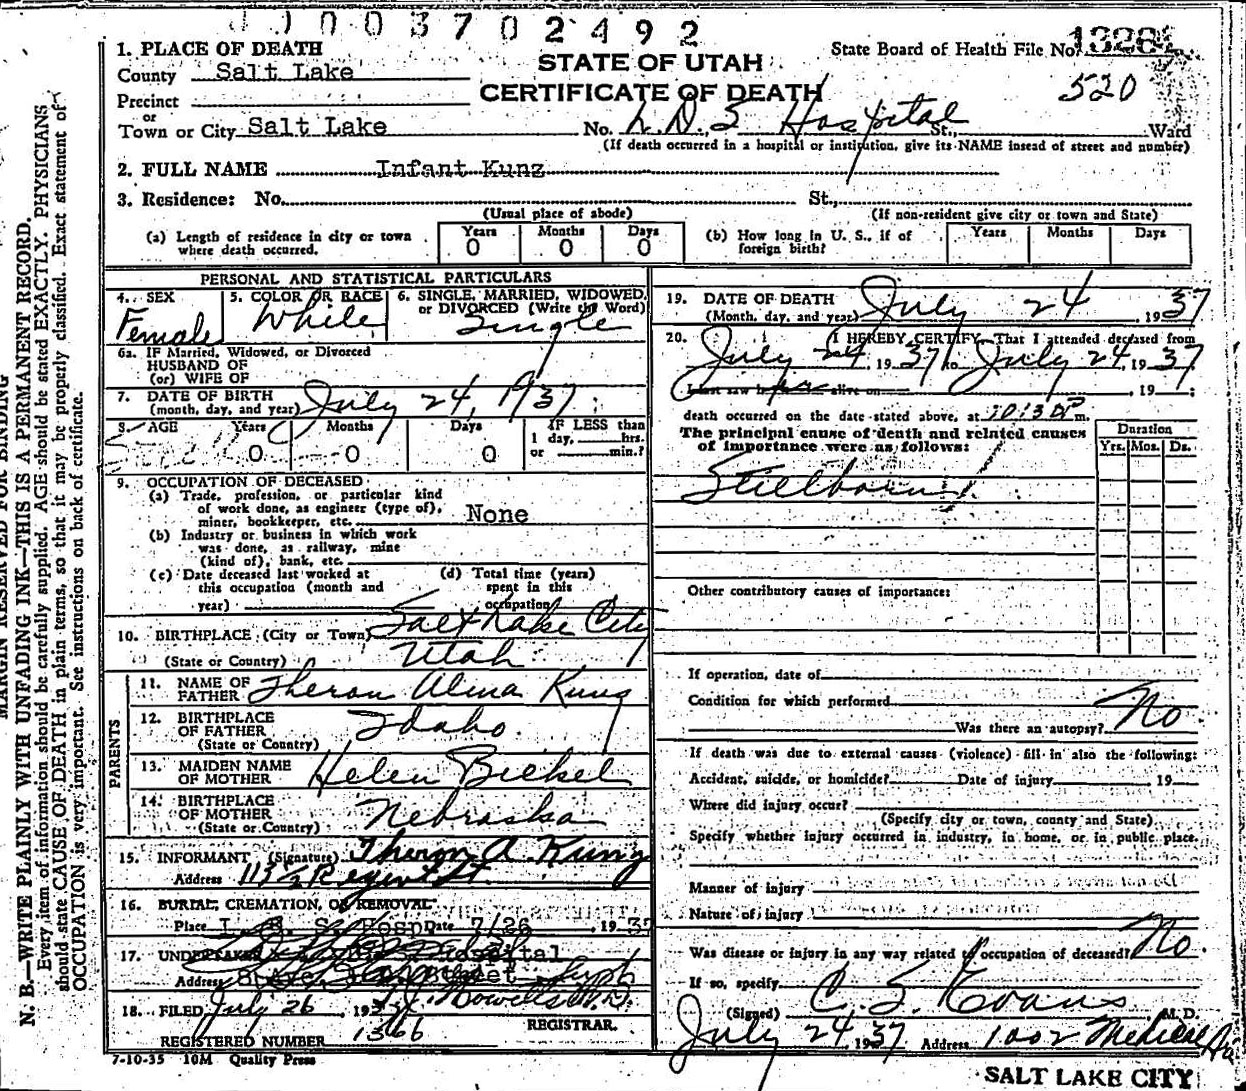 003702492
1. PLACE OF DEATH
County Salt Lake
Precinct
or
Town or City Salt Lake
STATE OF UTAH
CERTIFICATE OF DEATH
State Board of Health File No.
520
No. L.D.S Hospital St., Ward
(If death occurred in a hospital or institution, give its NAME insead of street and number)
2. FULL NAME Infant Kunz
3. Residence: No. St.,
(Usual place of abode) (If non-resident give city or town and State)
(a) Length of residence in city or town where death occurred. Years 0 Months 0 Days 0
(b) How long in U. S., if of foreign birth? Years Months Days
PERSONAL AND STATISTICAL PARTICULARS
4. SEX Female
5. COLOR OR RACE White
6. SINGLE, MARRIED, WIDOWED, or DIVORCED (Write the Word) Single
6a. IF Married, Widowed, or Divorced
HUSBAND OF
(or) WIFE OF
7. DATE OF BIRTH
(month, day, and year) July 24, 1937
8. AGE Years 0 Months 0 Days 0
IF LESS than
1 day, hrs.
or min.?
9. OCCUPATION OF DECEASED
(a) Trade, profession, or particular kind
of work done, as engineer (type of),
miner, bookkeeper, etc. None
(b) Industry or business in which work
was done, as railway, mine
(kind of), bank, etc.
(c) Date deceased last worked at
this occupation (month and
year)
(d) Total time (years)
spent in this
occupation
10. BIRTHPLACE (City or Town) Salt Lake City
(State or Country) Utah
PARENTS
11. NAME OF
FATHER Theron Alma Kunz
12. BIRTHPLACE
OF FATHER Idaho.
(State or Country)
13. MAIDEN NAME
OF MOTHER Helen Bickel
14. BIRTHPLACE
OF MOTHER Nebraska
(State or Country)
15. INFORMANT (Signature) Theron A. Kunz
Address 113 1/2 Regent St.
16. BURIAL, CREMATION, OR REMOVAL
Place L. D. S. Hosp Date 7/26, 1937
17. UNDERTAKER Hospital
Address State Street
18. FILED July 26, 193
REGISTRAR.
REGISTERED NUMBER 1366
7-10-35 10M Quality Press
19. DATE OF DEATH
(Month, day, and year) July 24, 1937
20. I HEREBY CERTIFY, That I attended deceased from
July 24, 1937 to July 24, 1937
I last saw h alive on , 19 ;
death occurred on the date stated above, at 10:30 P m.
The principal cause of death and related causes
of importance were as follows:
Duration
Yrs. Mos. Ds.
Stillborn
Other contributory causes of importance:
If operation, date of
Condition for which performed
Was there an autopsy? No
If death was due to external causes (violence) fill in also the following:
Accident, suicide, or homicide? Date of injury 19
Where did injury occur?
(Specify city or town, county and State)
Specify whether injury occurred in industry, in home, or in public place.
Manner of injury
Nature of injury
Was disease or injury in any way related to occupation of deceased? No.
If so, specify
(Signed) C S Evans M.D.
July 24 1937 Address 1002 Medical
SALT LAKE CITY
MARGIN RESERVED FOR BINDING
N. B.—WRITE PLAINLY WITH UNFADING INK—THIS IS A PERMANENT RECORD.
Every item of information should be carefully supplied. AGE should be stated EXACTLY. PHYSICIANS
should state CAUSE OF DEATH in plain terms, so that it may be properly classified. Exact statement of
OCCUPATION is very important. See instructions on back of certificate.